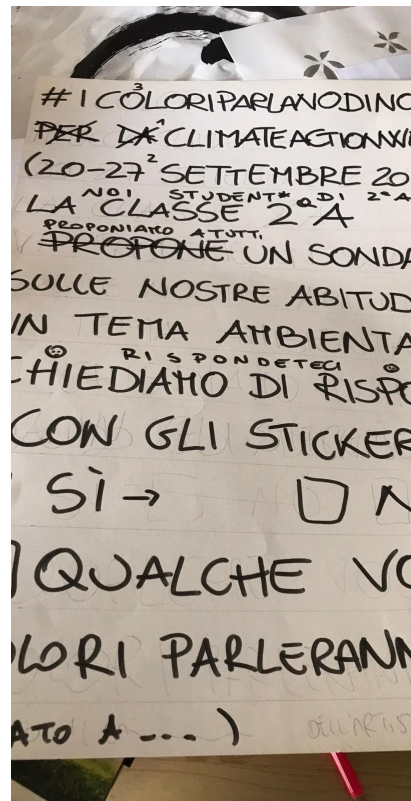 # I COLORIPARLANODINO
3
PER DA CLIMATEACTIONW
(20-27 SETTEMBRE 20
2
NOI STUDENT* DI 2ªA
LA CLASSE 2ªA
PROPONIAMO A TUTTI
PROPONE UN SONDA
SULLE NOSTRE ABITUD
IN TEMA AMBIENTA
RISPONDETECI
CHIEDIAMO DI RISPO
CON GLI STICKER
SÌ →
QUALCHE VO
OLORI PARLERANN
ATO A ... )
DELL'ARTIS